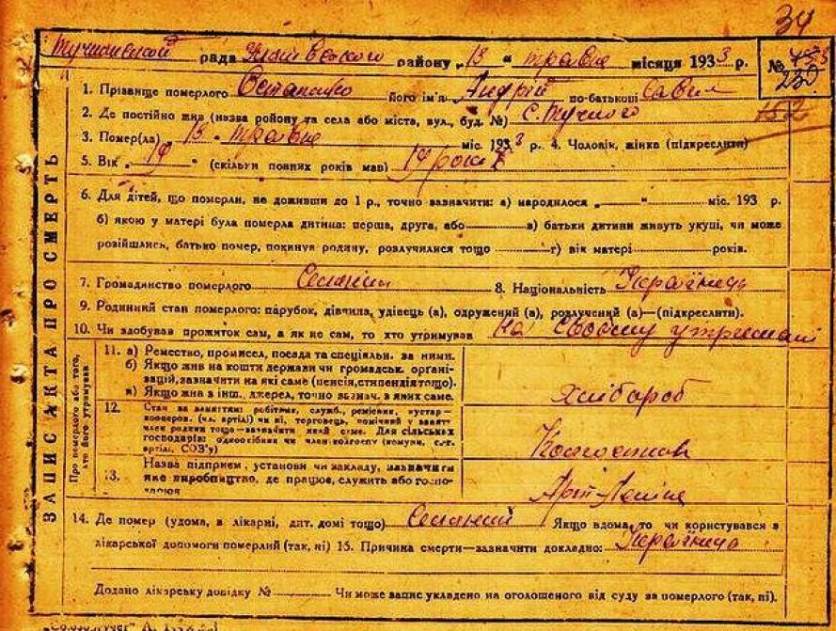 34
Тучнянской рада Уланівського району „13 “ травня місяця 1933 р.
№ 230
152
1. Прізвище померлого Остапенко його ім'я Андрій по-батькові Савич
2. Де постійно жив (назва району та села або міста, вул., буд. №) с. Тучного
3. Помер(ла) 13 - травня міс. 1933 р. 4. Чоловік, жінка (підкреслити)
5. Вік „ 19 “ (скільки повних років мав) 19 років
6. Для дітей, що померли, не доживши до 1 р., точно зазначити: а) народилося „ “ міс. 193 р.
б) якою у матері була померла дитина: перша, друга, або в) батьки дитини живуть укупі, чи може
розійшлись, батько помер, покинув родину, розлучилися тощо г) вік матері років.
7. Громадянство померлого Селянин 8. Національність Українець
9. Родинний стан померлого: парубок, дівчина, удівець (а), одружений (а), розлучений (а)—(підкреслити).
10. Чи здобував прожиток сам, а як не сам, то хто утримував на своєму утримані
ЗАПИС АКТА ПРО СМЕРТЬ
Про померлого або того, хто його утримував
11. а) Ремество, промисел, посада та спеціяльн. за ними.
б) Якщо жив на кошти держави чи громадськ. органі-
зацій, зазначити на які саме (пенсія, стипендія тощо).
в) Якщо жив з інш. джерел, точно зазнач. з яких саме.
хлібороб
12. Стан за заняттям: робітник, служб., ремісник, кустар—
кооперов. (чл. артілі) чи ні, торговець, помічний у занятт.
член родини тощо—зазначити який саме. Для сільських
господарів: одноосібник чи член колгоспу (комуни, с.-г.
артілі, СОЗ'у)
Колгоспник
13. Назва підприєм., установи чи закладу, зазначити
яке виробництво, де працює, служить або госпо-
дарює
Арт. Леніна
14. Де помер (удома, в лікарні, дит. домі тощо) Селянин Якщо вдома, то чи користувався з
лікарської допомоги померлий (так, ні) 15. Причина смерти—зазначити докладно: Українець
Додано лікарську довідку № Чи може запис укладено на оголошеного від суду за померлого (так, ні).